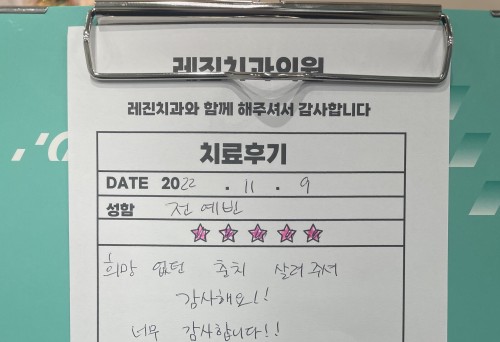 레진치과의원
레진치과와 함께 해주셔서 감사합니다
치료후기
DATE 2022 . 11 . 9
성함 전예빈
희망 없던 충치 살려주셔
감사해요!!
너무 감사합니다!!